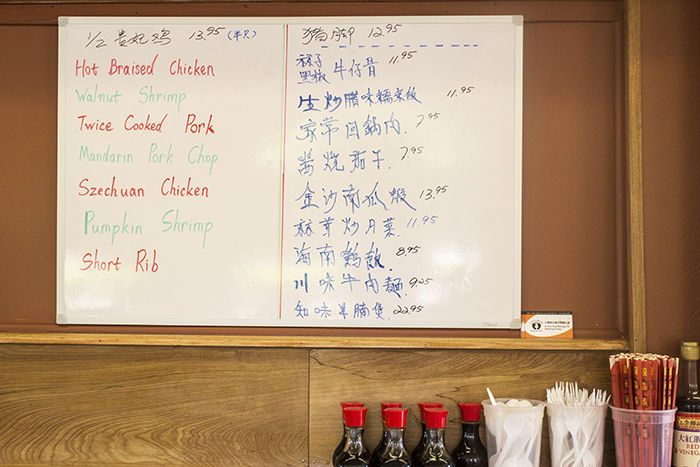 1/2 贵妃鸡 13.95 (半只)
Hot Braised Chicken
Walnut Shrimp
Twice Cooked Pork
Mandarin Pork Chop
Szechuan Chicken
Pumpkin Shrimp
Short Rib
猪脚 12.95
黑椒 牛仔骨 11.95
生炒腊味糯米飯 11.95
家常回鍋肉 7.95
醬烧茄子 7.95
金沙南瓜蝦 13.95
蒜茸炒月菜 11.95
海南鷄飯 8.95
川味牛肉麵 9.25
羊腩煲 22.95
大紅浙
RED
VINEGAR